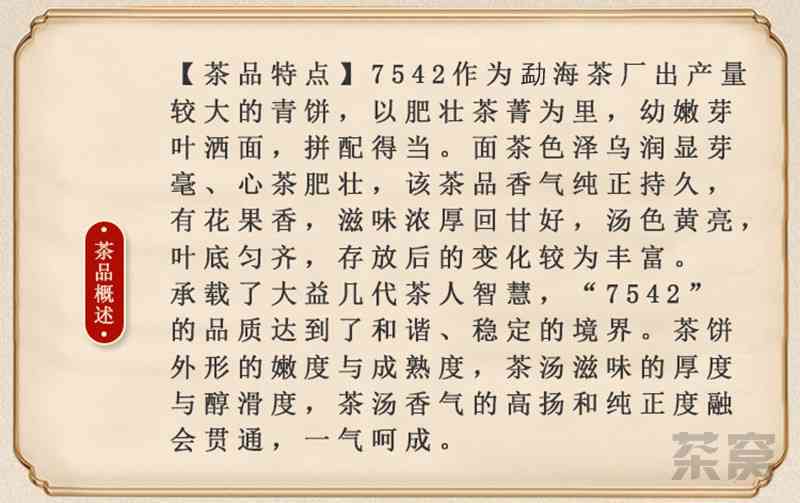 【茶品特点】7542作为勐海茶厂出产量
较大的青饼，以肥壮茶菁为里，幼嫩芽
叶洒面，拼配得当。面茶色泽乌润显芽
毫、心茶肥壮，该茶品香气纯正持久，
有花果香，滋味浓厚回甘好，汤色黄亮，
叶底匀齐，存放后的变化较为丰富。
承载了大益几代茶人智慧，“7542”
的品质达到了和谐、稳定的境界。茶饼
外形的嫩度与成熟度，茶汤滋味的厚度
与醇滑度，茶汤香气的高扬和纯正度融
会贯通，一气呵成。
茶品概述
茶窝